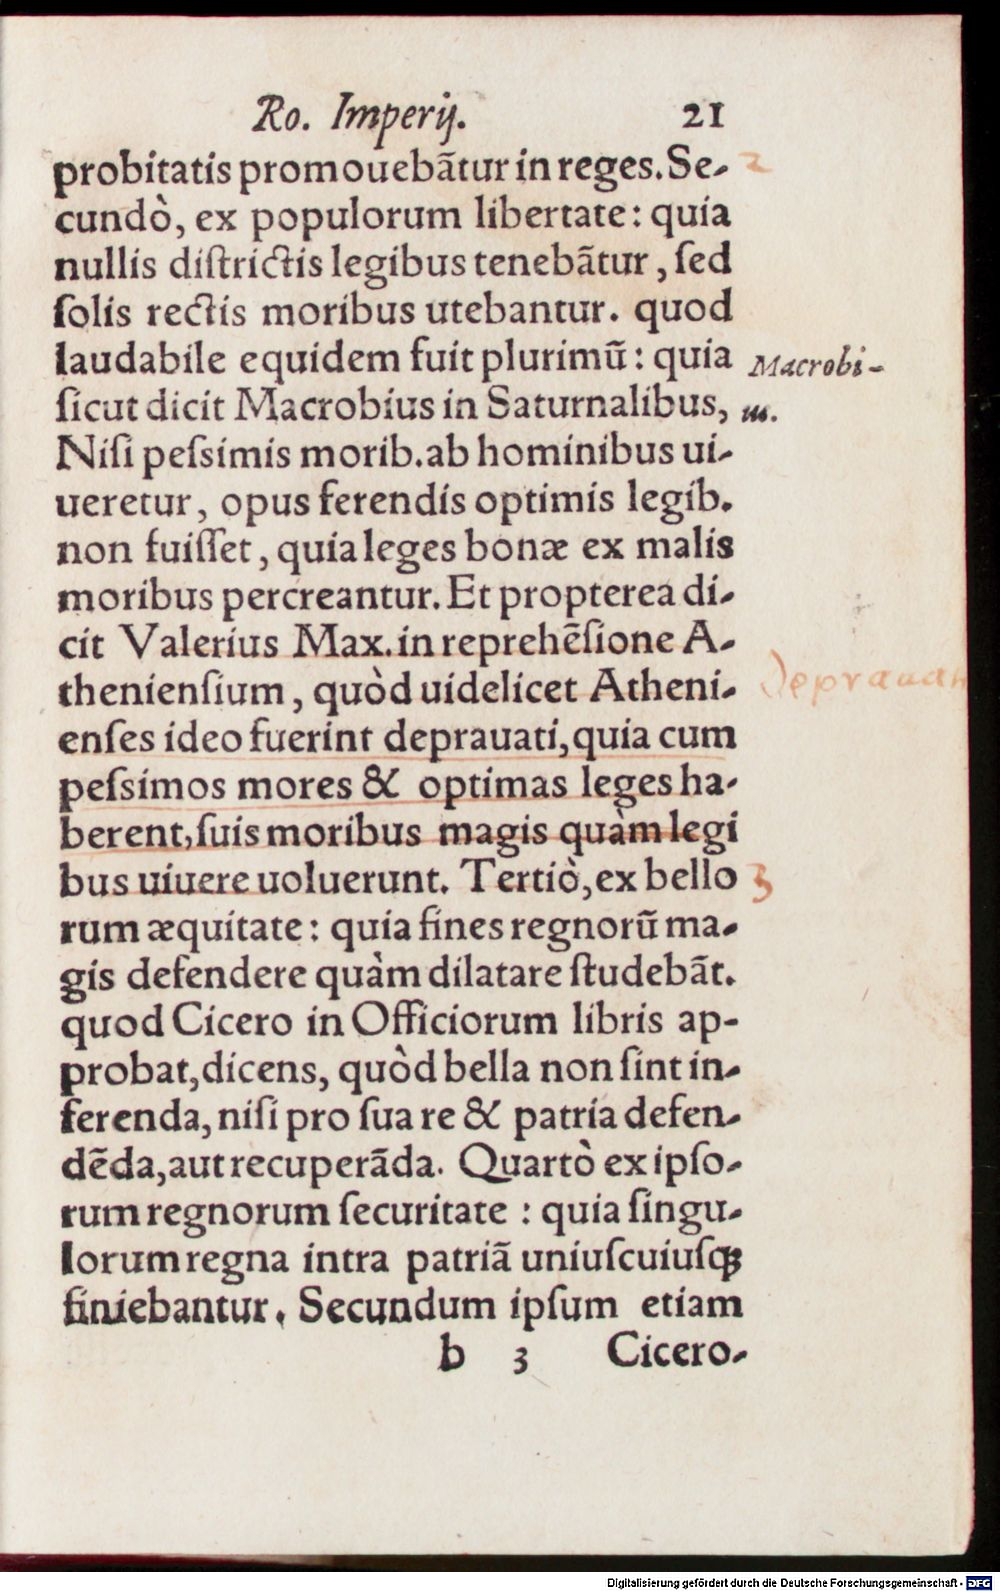 Ro. Imperij. 21
probitatis promouebãtur in reges. Se- 2
cundò, ex populorum libertate: quia
nullis diſtrictis legibus tenebãtur, ſed
ſolis rectis moribus utebantur. quod
laudabile equidem fuit plurimũ: quia Macrobi-
ſicut dicit Macrobius in Saturnalibus, us.
Niſi peſsimis morib. ab hominibus ui-
ueretur, opus ferendis optimis legib.
non fuiſſet, quia leges bonæ ex malis
moribus percreantur. Et propterea di-
cit Valerius Max. in reprehẽſione A-
thenienſium, quòd uidelicet Atheni- Deprauan
enſes ideo fuerint deprauati, quia cum
peſsimos mores & optimas leges ha-
berent, ſuis moribus magis quàm legi
bus uiuere uoluerunt. Tertiò, ex bello 3
rum æquitate: quia fines regnorũ ma-
gis defendere quàm dilatare ſtudebãt.
quod Cicero in Officiorum libris ap-
probat, dicens, quòd bella non ſint in-
ferenda, niſi pro ſua re & patria defen-
dẽda, aut recuperãda. Quartò ex ipſo-
rum regnorum ſecuritate: quia ſingu-
lorum regna intra patriã uniuſcuiuſꝗ
finiebantur. Secundum ipſum etiam
b 3 Cicero-
Digitalisierung gefördert durch die Deutsche Forschungsgemeinschaft - DFG